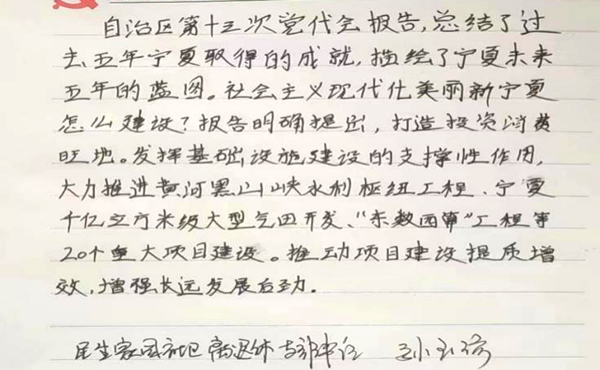 自治区第十三次党代会报告,总结了过
去五年宁夏取得的成就,描绘了宁夏未来
五年的蓝图。社会主义现代化美丽新宁夏
怎么建设?报告明确提出,打造投资消费
旺地。发挥基础设施建设的支撑性作用,
大力推进黄河黑山峡水利枢纽工程、宁夏
千亿立方米级大型气田开发、“东数西算”工程等
20个重大项目建设。推动项目建设提质增
效,增强长远发展后劲。
民生家园社区离退休支部书记 孙玉